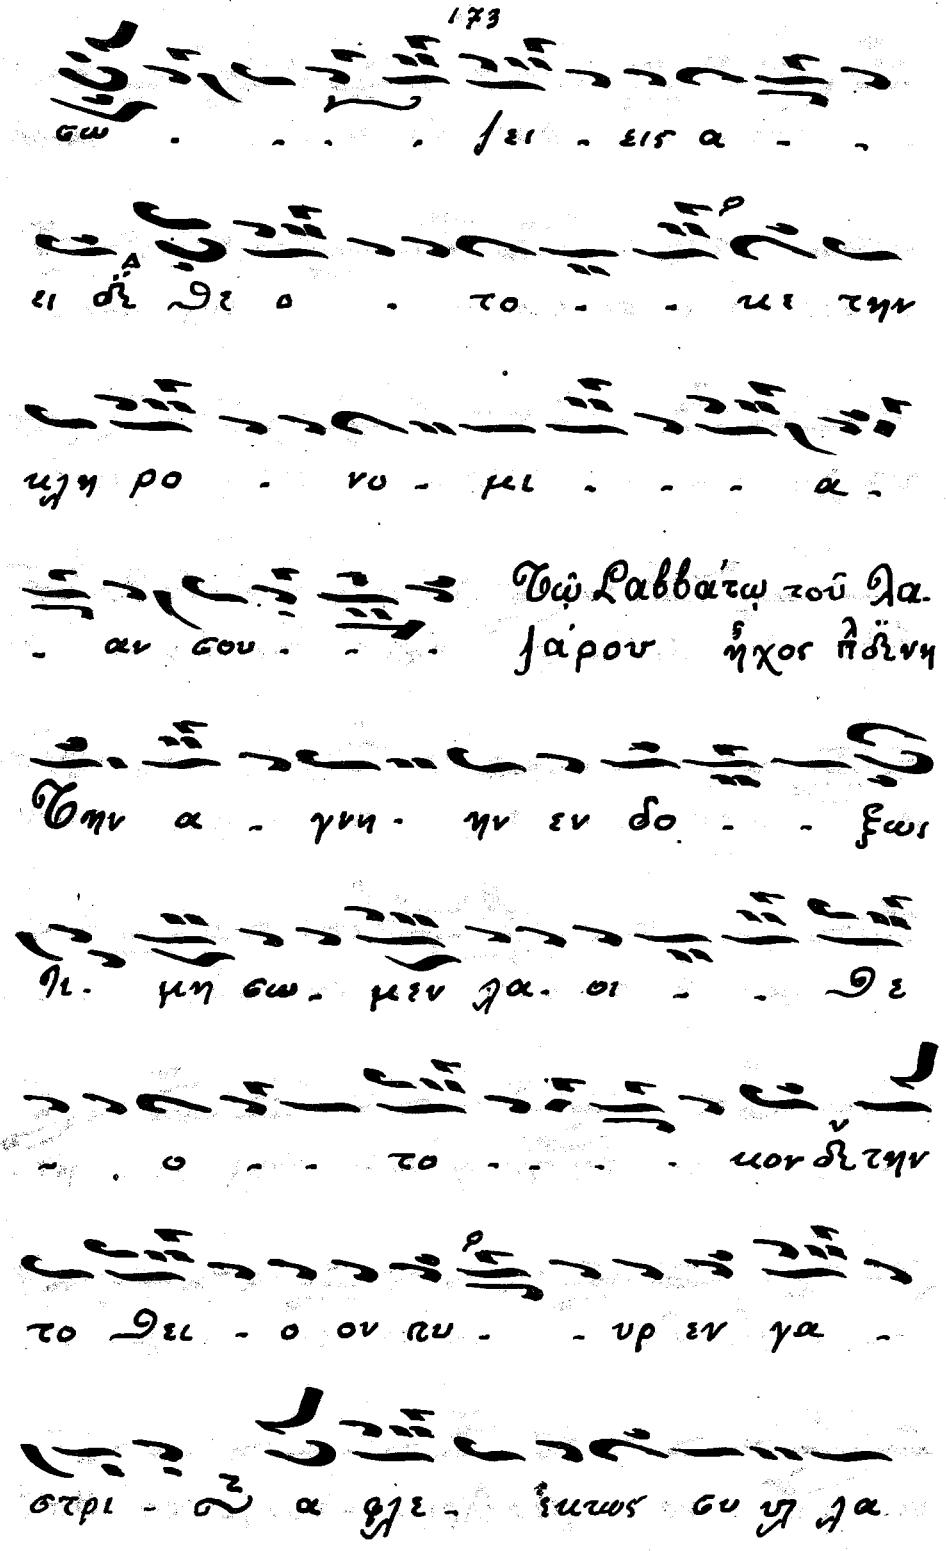 173
σω . - - - ζει - εις α - -
ει δι Θε ο - το - - κε την
κλη ρο - νο - μι - - - α -
- αν σου - - - Τῷ Σαββάτῳ τοῦ Λα-
ζάρου ἦχος πλ δι νη
Την α - γνη - ην εν δο - - ξως
τι - μη σω - μεν λα - οι - - Θε
- . ο - - το - - - - κον δι την
το Θει - ο ον πυ - - υρ εν γα -
στρι - α φλε - έκτως συ υλ λα